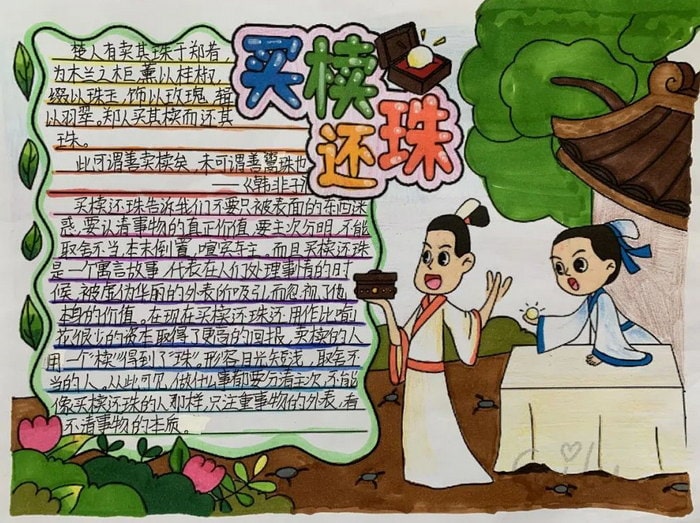 买椟还珠
楚人有卖其珠于郑者
为木兰之柜 薰以桂椒
缀以珠玉 饰以玫瑰 辑
以羽翠,郑人买其椟而还其
珠。
此可谓善卖椟矣,未可谓善鬻珠也
——《韩非子》
买椟还珠告诉我们不要只被表面的东西迷
惑,要认清事物的真正价值,要主次分明,不能
取舍不当,本末倒置,喧宾夺主,而且买椟还珠
是一个寓言故事,代表在人们处理事情的时
候,被虚伪华丽的外表所吸引而忽视了值
的价值,在现在买椟还珠还用作比喻
花很少的资本取得了更高的回报,卖椟的人
用一个"椟"得到了"珠",形容目光短浅,取舍不
当的人。从此可见,做什么事都要分清主次,不能
像买椟还珠的人那样,只注重事物的外表,看
不清事物的本质。